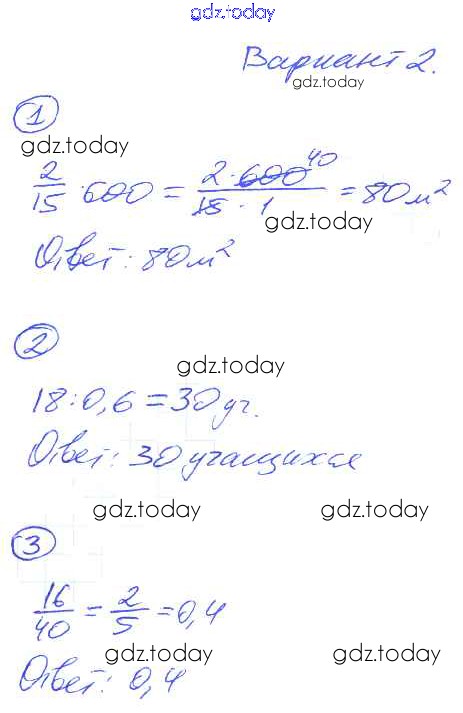 gdz.today
Вариант 2.
gdz.today
1
gdz.today
2/15 · 600 = 2 · 600 40 / 15 · 1 = 80 м²
gdz.today
Ответ: 80 м²
2
gdz.today
18 : 0,6 = 30 уч.
Ответ: 30 учащихся
gdz.today gdz.today
3
16/40 = 2/5 = 0,4
gdz.today gdz.today
Ответ: 0,4